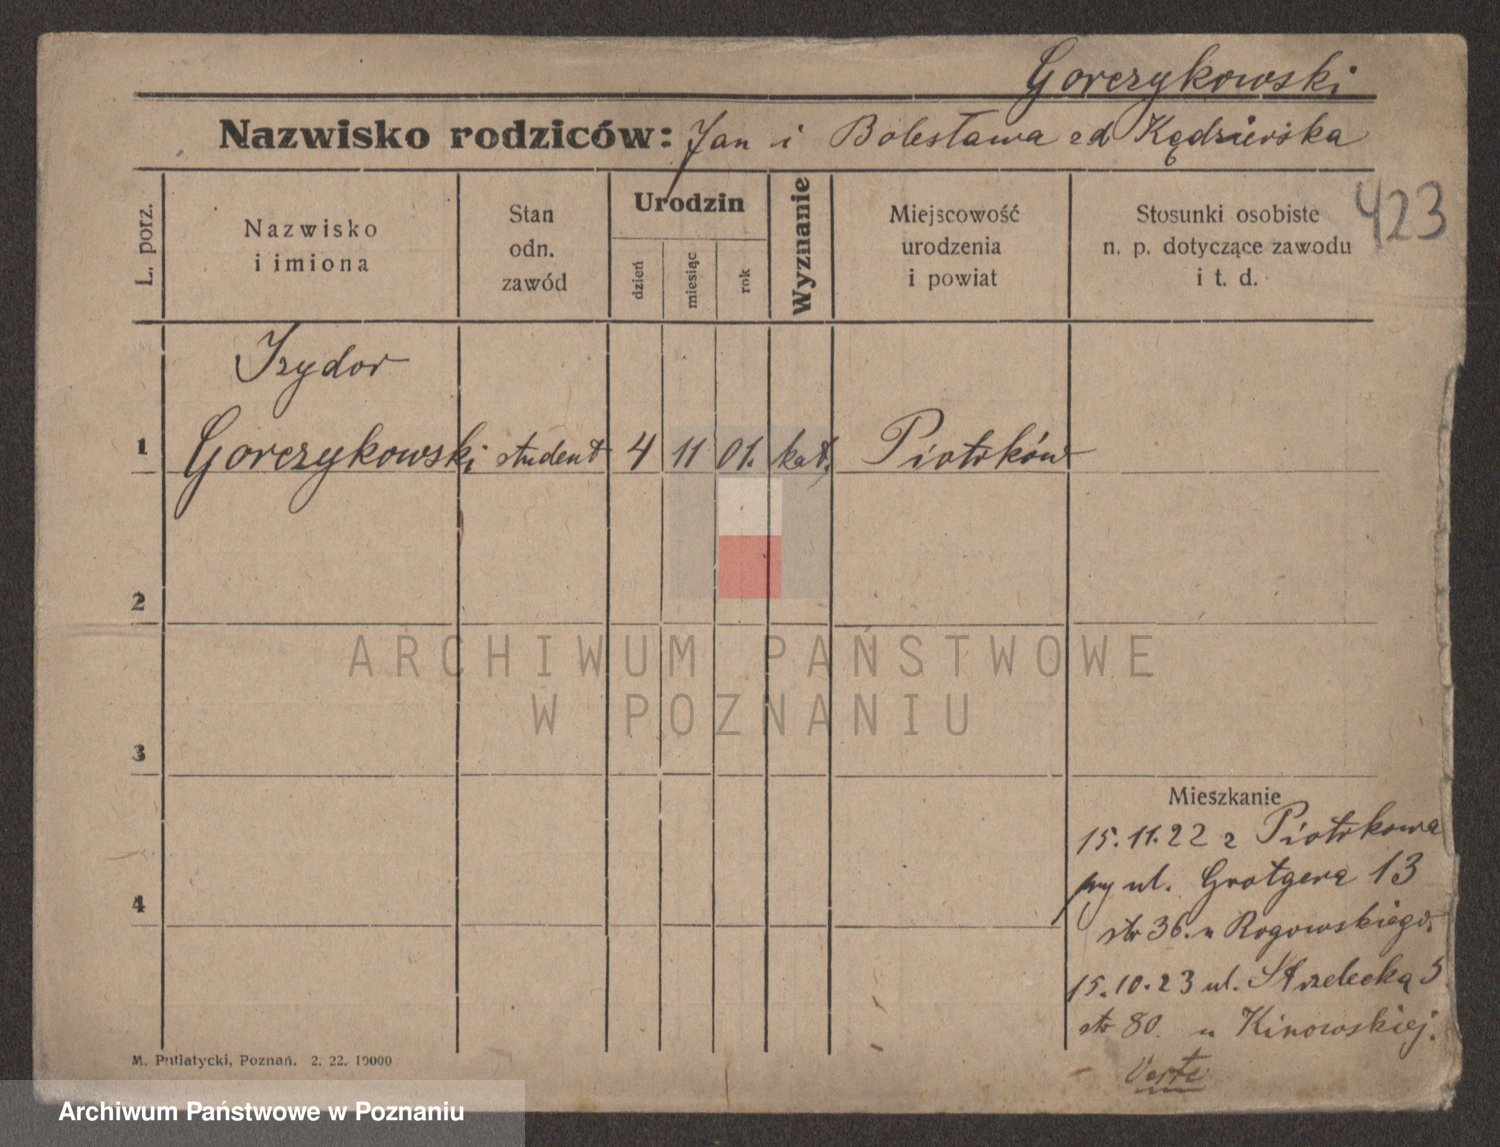 Gorczykowski
Nazwisko rodziców: Jan i Bolesława zd Kędzierska
423
L. porz.
Nazwisko
i imiona
Stan
odn.
zawód
Urodzin
dzień
miesiąc
rok
Wyznanie
Miejscowość
urodzenia
i powiat
Stosunki osobiste
n. p. dotyczące zawodu
i t. d.
Izydor
1 Gorczykowski student 4 11 01. kat. Piotrków
2
ARCHIWUM PAŃSTWOWE
W POZNANIU
3
Mieszkanie
15.11.22 z Piotrkowa
ul. Grotgera 13
4
str 36. u Rogowskiego.
15.10.23 ul. Strzelecka 5
str 80. u Kinowskiej.
Verte
M. Putiatycki, Poznań. 2. 22. 10000
Archiwum Państwowe w Poznaniu